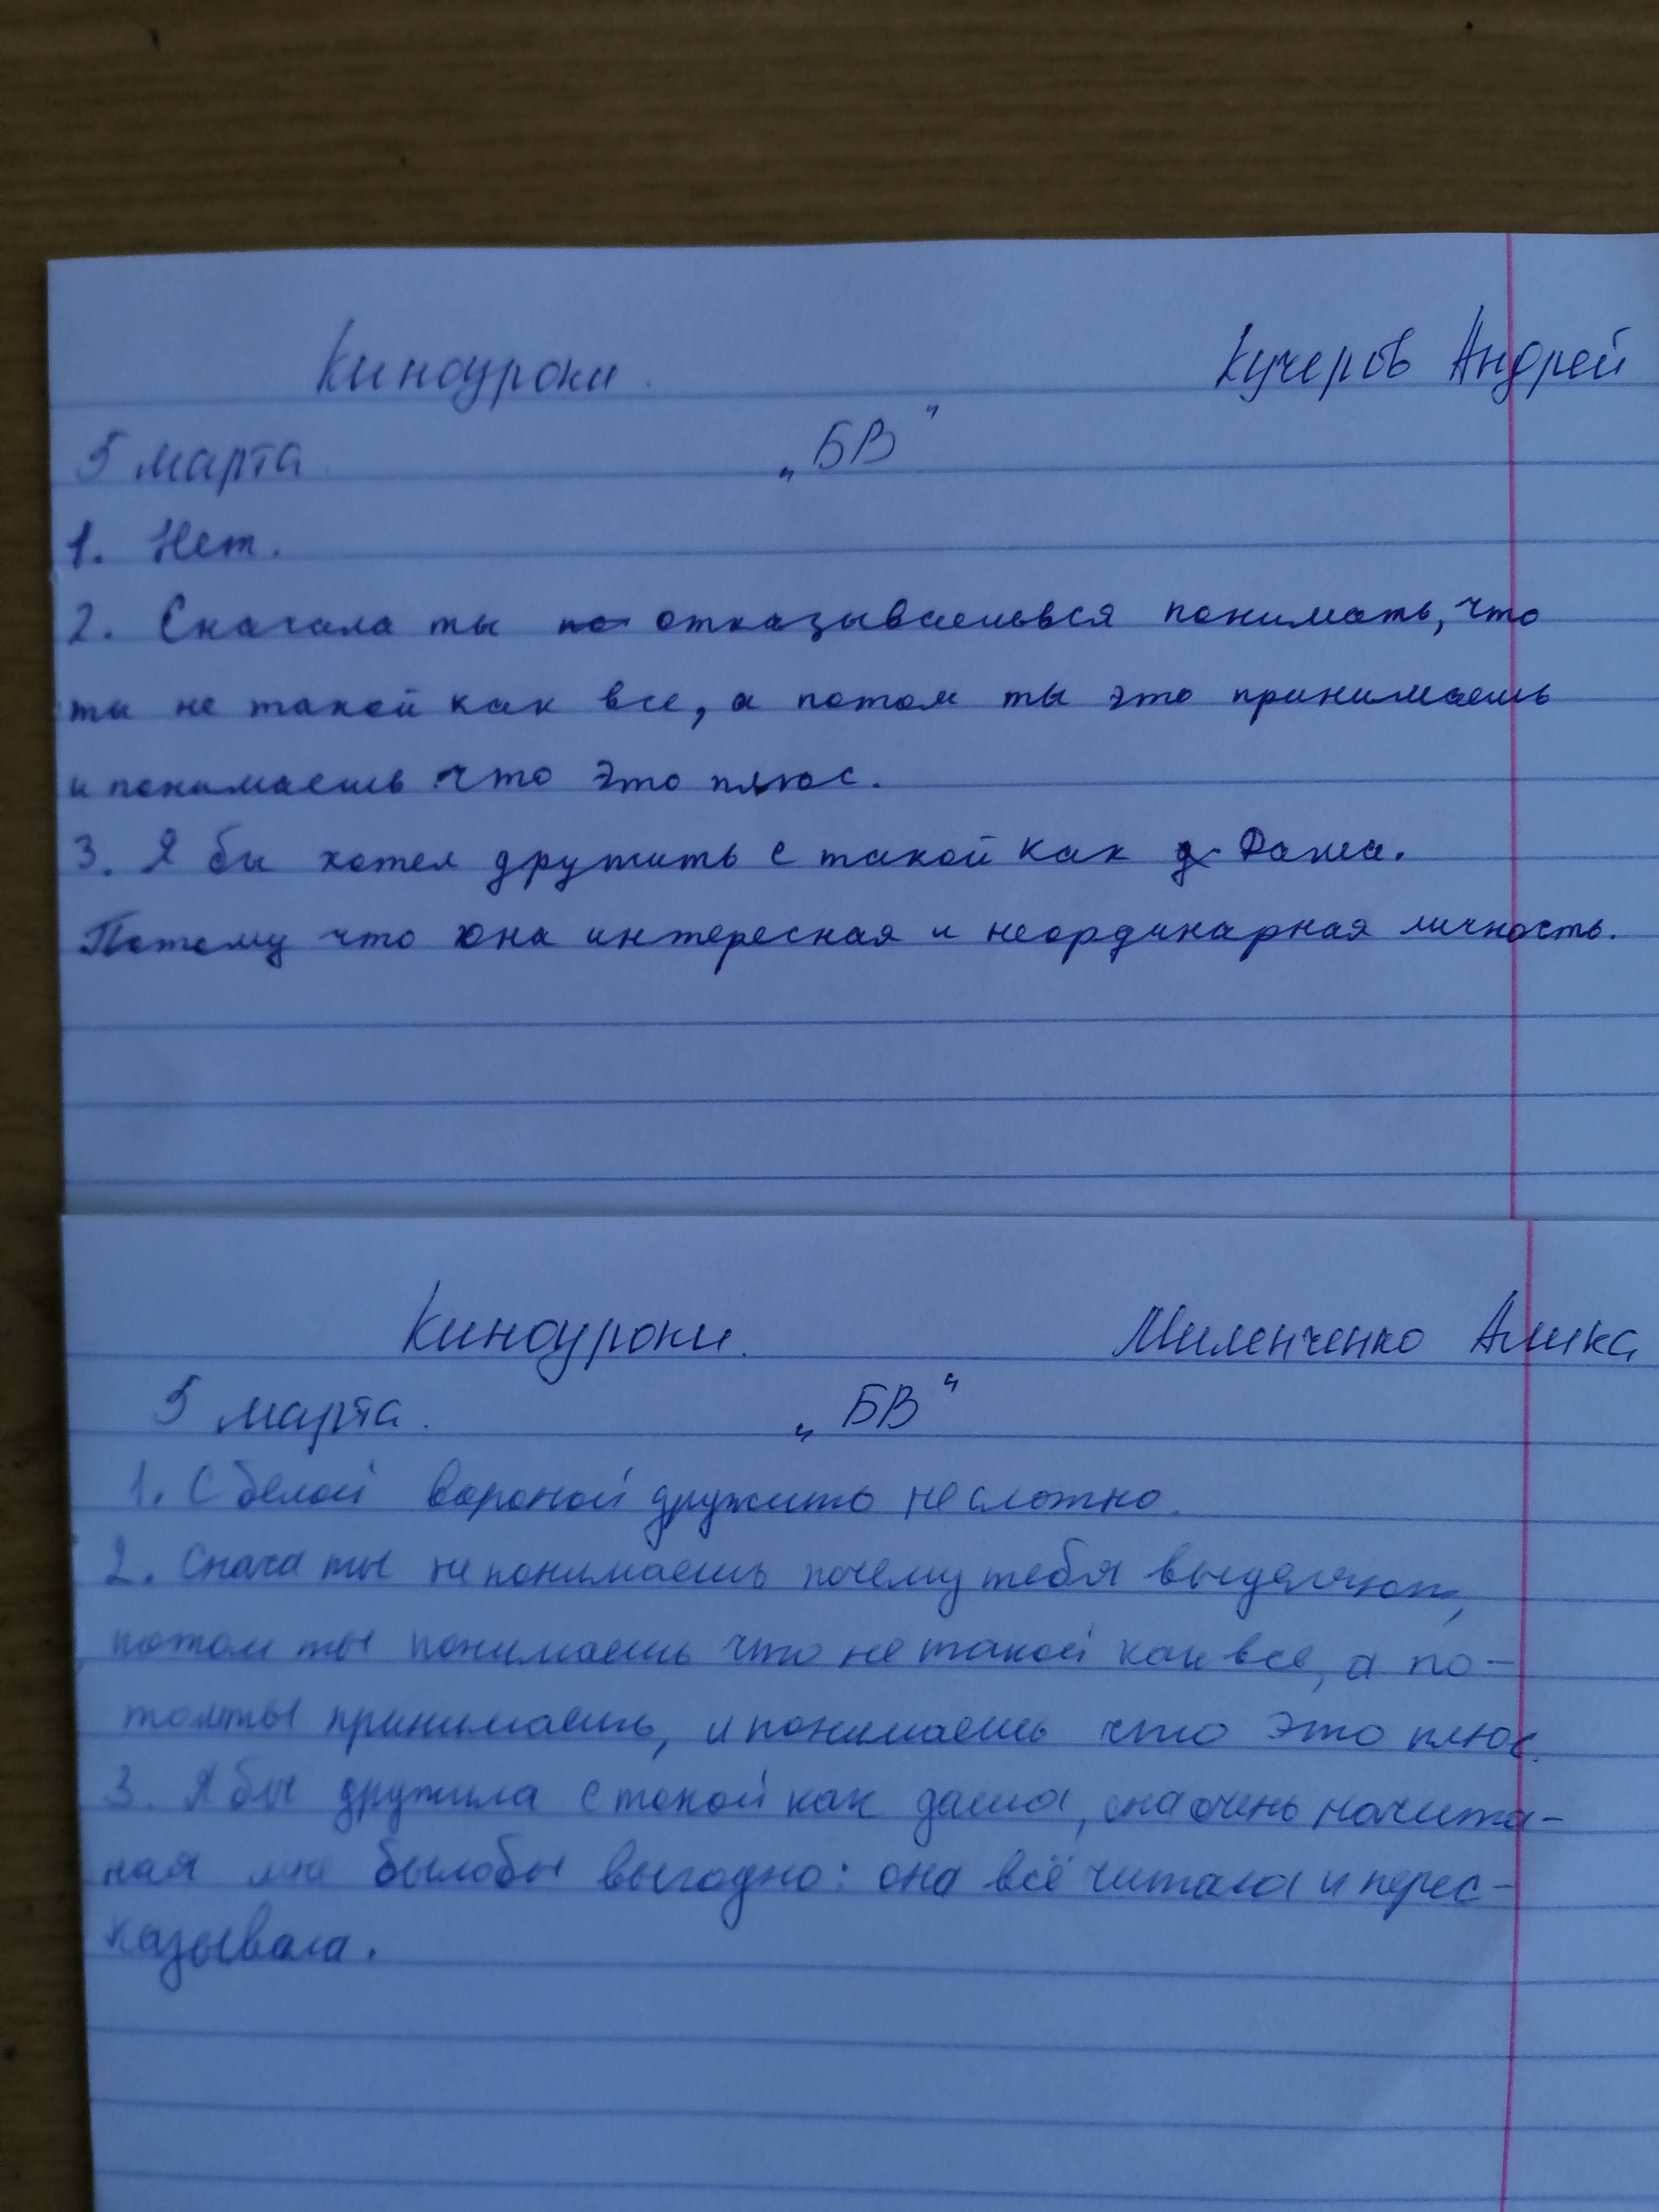 Киноуроки. Кучеров Андрей
5 марта. „БВ"
1. Нет.
2. Сначала ты отказываешься понимать, что
ты не такой как все, а потом ты это принимаешь
и понимаешь что это плюс.
3. Я бы хотел дружить с такой как Даша.
Потому что она интересная и неординарная личность.
Киноуроки. Миленченко Алика
5 марта. „БВ"
1. С белой вороной дружить не сложно.
2. Снача ты не понимаешь почему тебя выделяют,
потом ты понимаешь что не такой как все, а по-
том ты принимаешь, и понимаешь что это плюс.
3. Я бы дружила с такой как даша, она очень начита-
ная мне было бы выгодно: она всё читала и перес-
казывала.